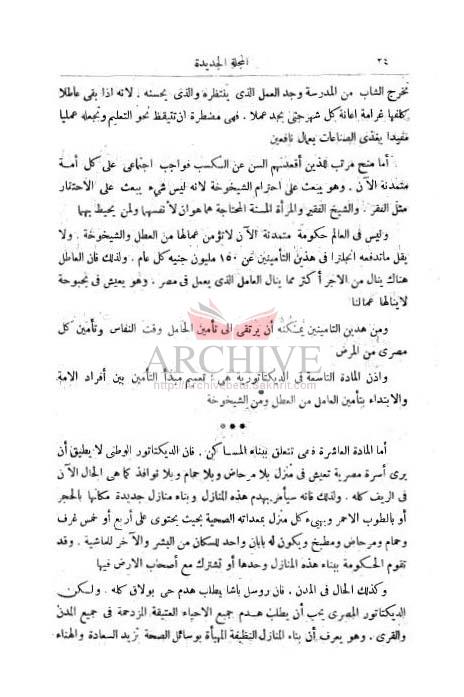 ٢٤
المجلة الجديدة
تخرج الشاب من المدرسة وجد العمل الذى ينتظره والذى يحسنه . لانه اذا بقى عاطلا
كلفها غرامة اعانة كل شهر حتى يجد عملا . فهى مضطرة ان تتيقظ نحو التعليم وتجعله عمليا
مفيدا يغذى الصناعات بعمال نافعين
أما منح مرتب للذين أقعدتهم السن عن الكسب فواجب اجتماعى على كل أمة
متمدنة الآن . وهو يبعث على احترام الشيخوخة لانه ليس شىء يبعث على الاحتقار
مثل الفقر . والشيخ الفقير والمرأة المسنة المحتاجة هما هوان لانفسهما ولمن يحيط بهما
وليس فى العالم حكومة متمدنة الآن لا تؤمن عمالها من العطل والشيخوخة . ولا
يقل ما تدفعه انجلترا فى هذين التأمينين عن ١٥٠ مليون جنيه كل عام . ولذلك فان العاطل
هناك ينال من الاجر أكثر مما ينال العامل الذى يعمل فى مصر . وهو يعيش فى بحبوحة
لا ينالها عمالنا
ومن هذين التامينين يمكنه أن يرتقى الى تأمين الحامل وقت النفاس وتأمين كل
مصرى من المرض
ARCHIVE
http://archivebeta.Sakhrit.com
واذن المادة التاسعة فى الديكتاتورية هى : تعميم مبدأ التأمين بين أفراد الامة
والابتداء بتأمين العامل من العطل ومن الشيخوخة
***
أما المادة العاشرة فهى تتعلق ببناء المساكن . فان الديكتاتور الوطنى لا يطيق أن
يرى أسرة مصرية تعيش فى منزل بلا مرحاض وبلا حمام وبلا نوافذ كما هى الحال الآن
فى الريف كله . ولذلك فانه سيأمر بهدم هذه المنازل وبناء منازل جديدة مكانها بالحجر
أو بالطوب الاحمر ويهىء كل منزل بمعداته الصحية بحيث يحتوى على أربع أو خمس غرف
وحمام ومرحاض ومطبخ ويكون له بابان واحد للسكان من البشر والآخر للماشية . وقد
تقوم الحكومة ببناء هذه المنازل وحدها أو تشترك مع أصحاب الارض فيها
وكذلك الحال فى المدن . فان روسل باشا يطلب هدم حى بولاق كله . ولكن
الديكتاتور المصرى يجب أن يطلب هدم جميع الاحياء العتيقة المزدحمة فى جميع المدن
والقرى . وهو يعرف أن بناء المنازل النظيفة المهيأة بوسائل الصحة تزيد السعادة والهناء